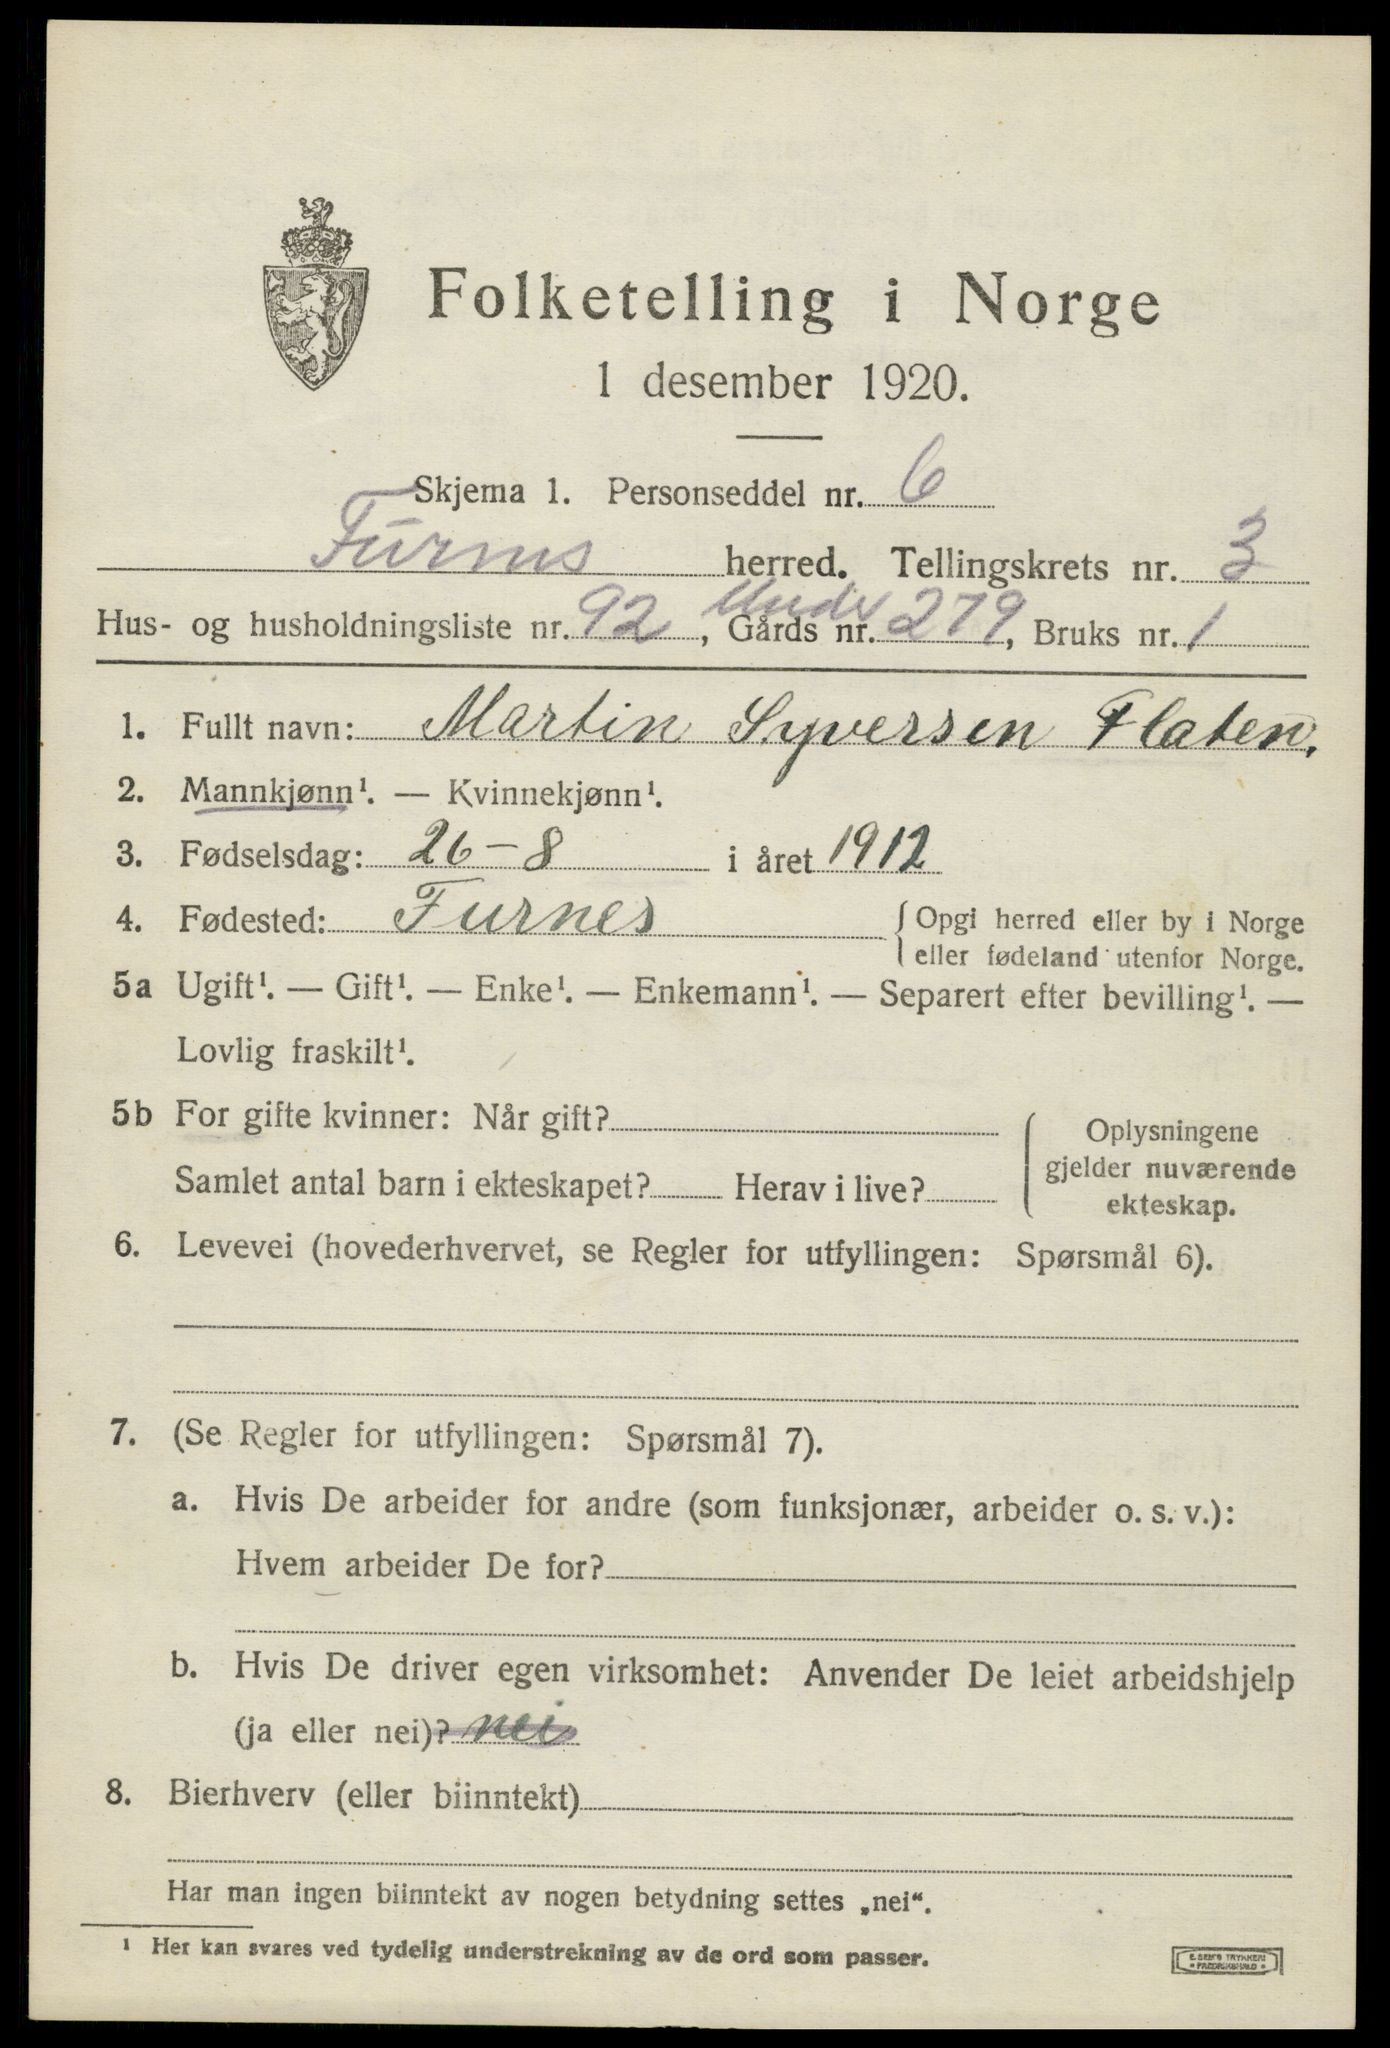 Folketelling i Norge
1 desember 1920.
Skjema 1. Personseddel nr. 6
Furnes herred. Tellingskrets nr. 3
Hus- og husholdningsliste nr. 92, Under Gårds nr. 279, Bruks nr. 1
1. Fullt navn: Martin Syversen Flaten.
2. Mannkjønn¹. — Kvinnekjønn¹.
3. Fødselsdag: 26-8 i året 1912
4. Fødested: Furnes { Opgi herred eller by i Norge
eller fødeland utenfor Norge.
5a Ugift¹. — Gift¹. — Enke¹. — Enkemann¹. — Separert efter bevilling¹. —
Lovlig fraskilt¹.
5b For gifte kvinner: Når gift?
Samlet antal barn i ekteskapet? Herav i live?
Oplysningene
gjelder nuværende
ekteskap.
6. Levevei (hovederhvervet, se Regler for utfyllingen: Spørsmål 6).
7. (Se Regler for utfyllingen: Spørsmål 7).
a. Hvis De arbeider for andre (som funksjonær, arbeider o. s. v.):
Hvem arbeider De for?
b. Hvis De driver egen virksomhet: Anvender De leiet arbeidshjelp
(ja eller nei)? nei
8. Bierhverv (eller biinntekt)
Har man ingen biinntekt av nogen betydning settes „nei“.
¹ Her kan svares ved tydelig understrekning av de ord som passer.
E. SEM'S TRYKKERI
FREDRIKSHALD